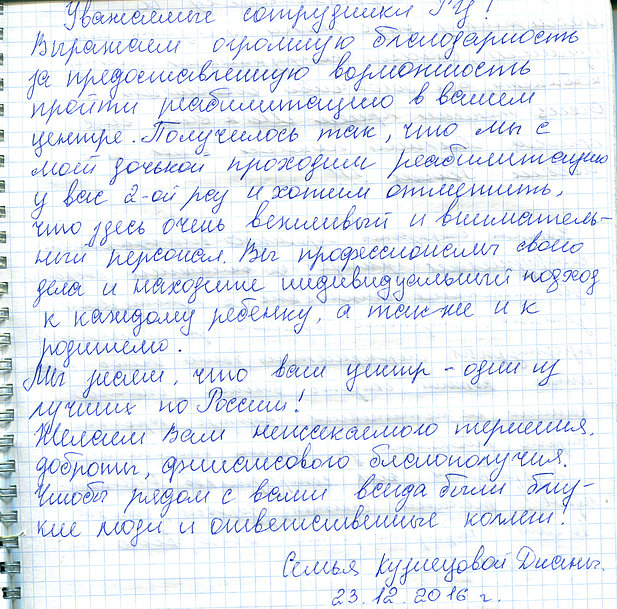 Уважаемые сотрудники РЦ!
Выражаем огромную благодарность
за предоставленную возможность
пройти реабилитацию в вашем
центре. Получилось так, что мы с
моей дочькой проходим реабилитацию
у вас 2-ой раз и хотим отметить,
что здесь очень вежливый и вниматель-
ный персонал. Вы профессионалы своего
дела и находите индивидуальный подход
к каждому ребенку, а также и к
родителю.
Мы знаем, что ваш центр - один из
лучших по России!
Желаем Вам неиссякаемого терпения,
доброты, финансового благополучия.
Чтобы рядом с вами всегда были близ-
кие люди и ответственные коллеги!
Семья Кузнецовой Дианы.
23.12.2016 г.